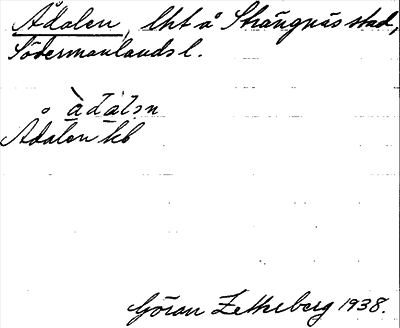 Ådalen, lht å Strängnäs stad,
Södermanlands l.
àdàlən
Ådalen kb
Göran Zetterberg 1938.